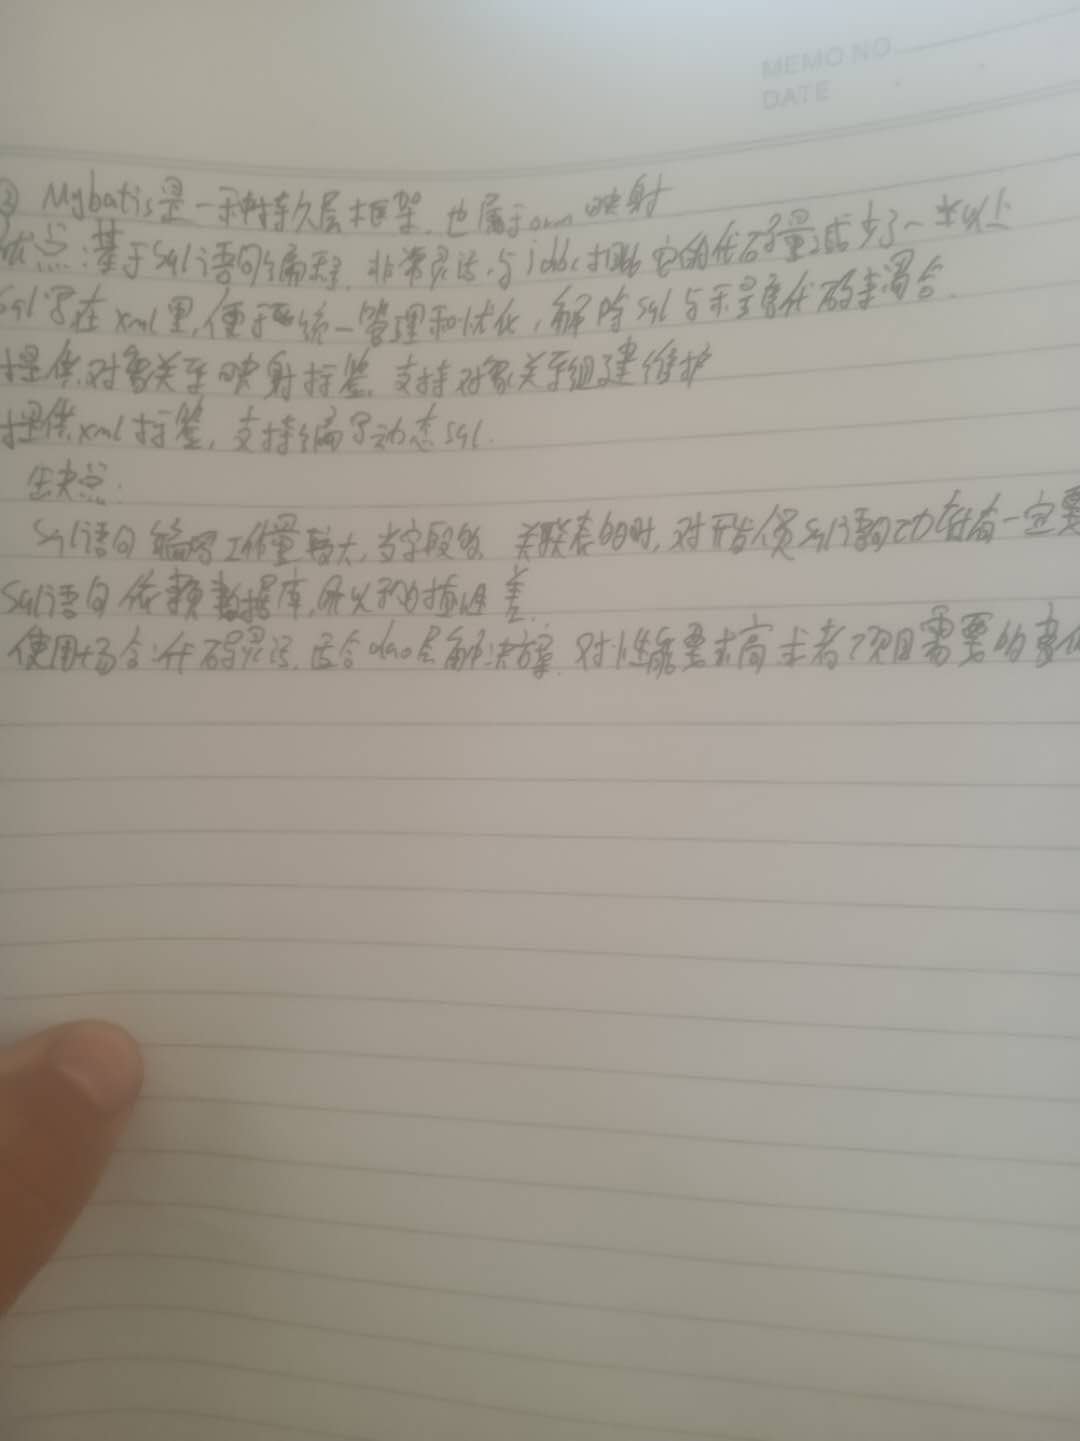 MEMO NO
DATE
② Mybatis是一种持久层框架,也属于orm映射
优点:基于sql语句编程,非常灵活,与jdbc相比它的代码量减少了一半以上
sql写在xml里,便于统一管理和优化,解除sql与程序代码耦合.
提供对象关系映射标签,支持对象关系组建维护
提供xml标签,支持编写动态sql.
缺点:
sql语句编写工作量较大,当字段多,关联表多时,对开发人员sql语句功底有一定要
sql语句依赖数据库,所以移植性差.
使用场合:代码灵活,适合dao层解决方案,对性能要求高或者项目需要的变化